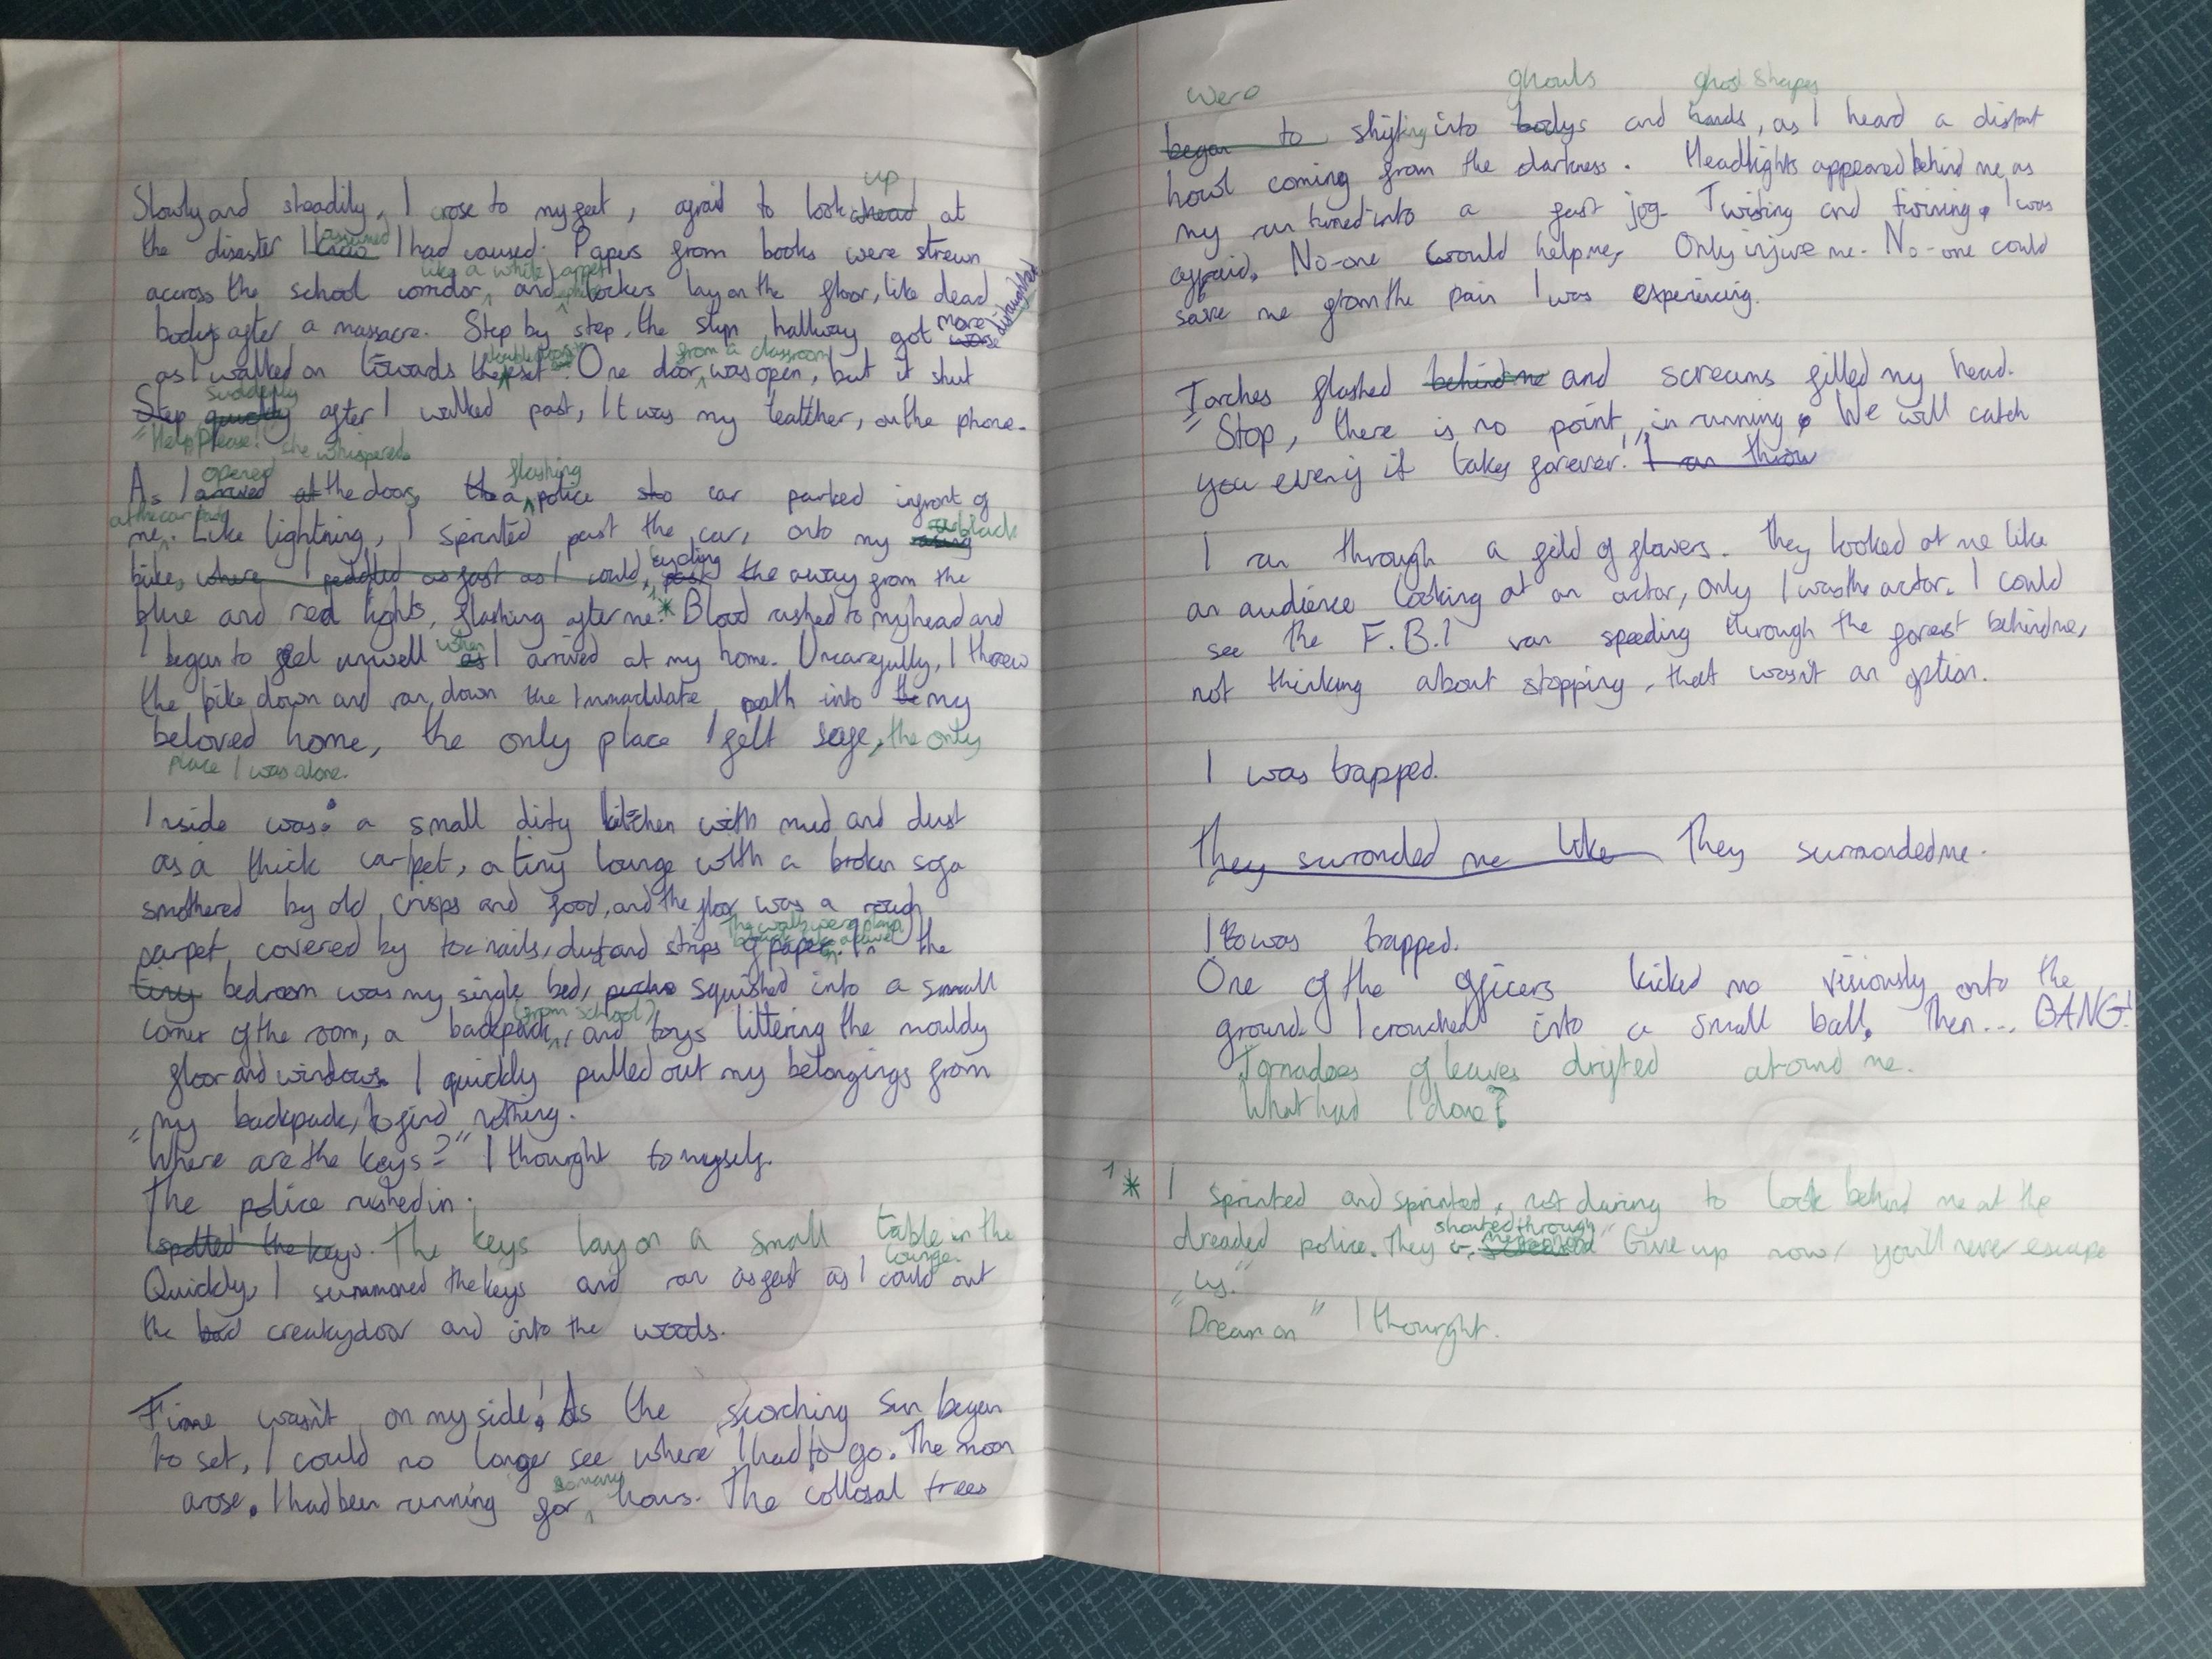 up
Slowly and steadily, I arose to my feet, afraid to look ahead at
assumed
the disaster I I had caused. Papers from books were strewn
like a white carpet
accross the school corridor, and lockers lay on the floor, like dead
bodys after a massacre. Step by step, the slim hallway got more
worse
as I walked on towards the . One door was open, but it shut
from a classroom
suddenly
Step quickly after I walked past, It was my teatcher, on the phone.
"Help Please." she whispered.
opened flashing
As I arrived at the door, the a police sto car parked infront of
at the car park
me. Like lightning, I sprinted past the car, onto my
black
cycling
bike, where I peddled as fast as I could, past the away from the
blue and red lights, flashing after me. 1* Blood rushed to my head and
when
I began to feel unwell as I arrived at my home. Uncarefully, I threw
the bike down and ran down the Immaculate path into the my
beloved home, the only place I felt safe, the only
place I was alone.
Inside was: a small dirty kitchen with mud and dust
as a thick carpet, a tiny lounge with a broken sofa
smothered by old crisps and food, and the floor was a rough
The walls were plain
carpet covered by toe nails, dust and strips of paper. In the
tiny bedroom was my single bed, squished into a small
(from school)
corner of the room, a backpack, and toys littering the mouldy
floor and windows. I quickly pulled out my belongings from
my backpack, to find nothing.
"Where are the keys?" I thought to myself.
The police rushed in.
I spotted the keys. The keys lay on a small table in the
lounge.
Quickly, I summoned the keys and ran as fast as I could out
the creaky door and into the woods.
Time wasn't on my side! As the scorching sun began
to set, I could no longer see where I had to go. The moon
so many
arose. I had been running for hours. The collosal trees
were ghouls ghost shapes
began to shifting into bodys and hands, as I heard a distant
howl coming from the darkness. Headlights appeared behind me, as
my run turned into a fast jog. Twisting and twining, I was
afraid. No-one would help me, Only injure me. No-one could
save me from the pain I was experiencing.
Torches flashed behind me and screams filled my head.
"Stop, there is no point in running, We will catch
you even if it takes forever!" I ran throw
I ran through a feild of flowers. They looked at me like
an audience looking at an actor, only I was the actor. I could
see the F.B.I van speeding through the forest behind me,
not thinking about stopping, that wasn't an option.
I was trapped.
They surronded me like They surrondedme.
I was trapped.
One of the officers kicked me visiously onto the
ground. I crouched into a small ball. Then... BANG!
Tornadoes of leaves drifted around me.
What had I done?
1* I sprinted and sprinted, not daring to look behind me at the
shouted through
megaphone
dreaded police. They "Give up now, you'll never escape
us."
"Dream on" I thought.